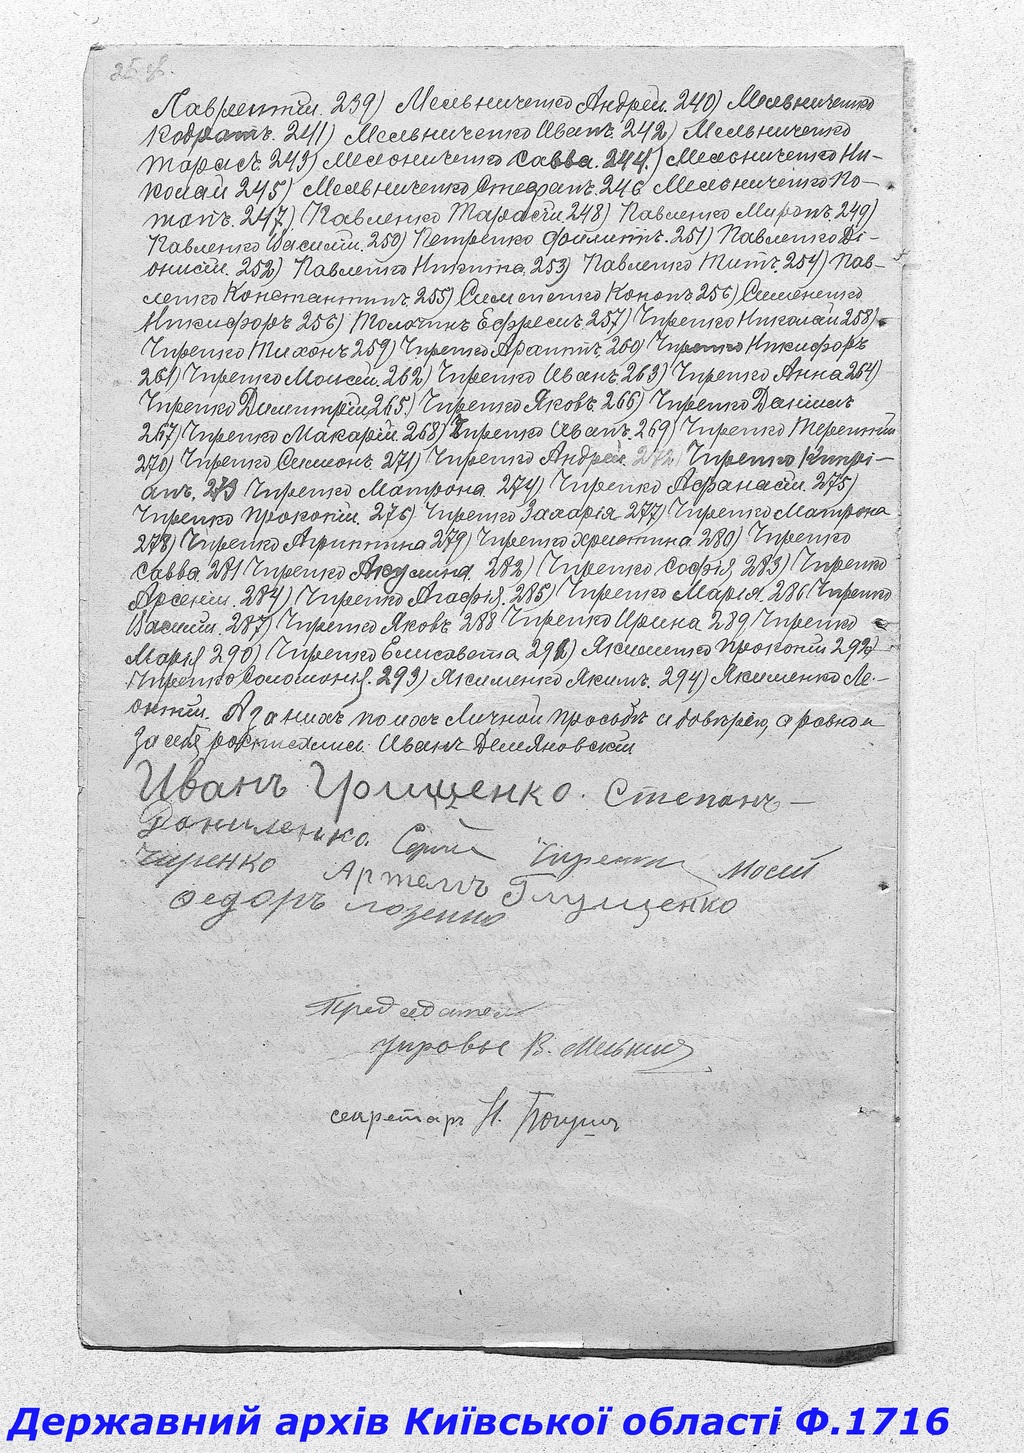 Лаврентій. 239) Мельниченко Андрей. 240) Мельниченко
Кодратъ. 241) Мельниченко Иванъ. 242) Мельниченко
Тарасъ. 243) Мельниченко Савва. 244.) Мельниченко Ни-
колай 245) Мельниченко Стефанъ. 246 Мельниченко По-
тапъ. 247) Павленко Тарасій. 248) Павленко Миронъ. 249)
Павленко Василій. 250) Петренко Филиппъ. 251) Павленко Ді-
онисій. 252) Павленко Никита. 253) Павленко Титъ. 254) Пав-
ленко Константинъ 255) Симоненко Кононъ 256) Симоненко
Никифоръ 256) Толочинъ Ефремъ 257) Чиренко Николай 258)
Чиренко Тихонъ 259) Чиренко 260 Чиренко Никифоръ
261) Чиренко Моисей. 262) Чиренко Иванъ 263) Чиренко Анна 264)
Чиренко Димитрій 265.) Чиренко Яковъ. 266) Чиренко Даніилъ
267) Чиренко Макарій. 268) Чиренко Иванъ. 269) Чиренко Терентій
270) Чиренко Симеонъ. 271) Чиренко Андрей. 272) Чиренко Кипрі-
анъ. 273 Чиренко Матрона. 274) Чиренко Афанасій. 275)
Чиренко Прокопій. 276) Чиренко Захарія 277) Чиренко Матрона
278) Чиренко Агриппина 279) Чиренко Христина 280) Чиренко
Савва 281 Чиренко Акулина. 282) Чиренко Софія 283) Чиренко
Арсеній. 284) Чиренко Агафія. 285) Чиренко Марія. 286 Чиренко
Василій. 287) Чиренко Яковъ 288 Чиренко Ирина 289 Чиренко
Марія 290) Чиренко Елисавета 291) Якименко Прокопій 292)
Чиренко Соломонія. 293) Якименко Якимъ. 294) Якименко Ле-
онтій. А за нихъ по ихъ личной просьбѣ и довѣрію, а равно и
за себя росписались Иванъ Демяновскій
Иванъ Грищенко. Степанъ
Даниленко. Сергій Чиренко Мосей
Чиренко Артемъ Глущенко
Федоръ Лозенко
Председатель
управы В. Мельник
секретарь Н.
Державний архів Київської області Ф.1716